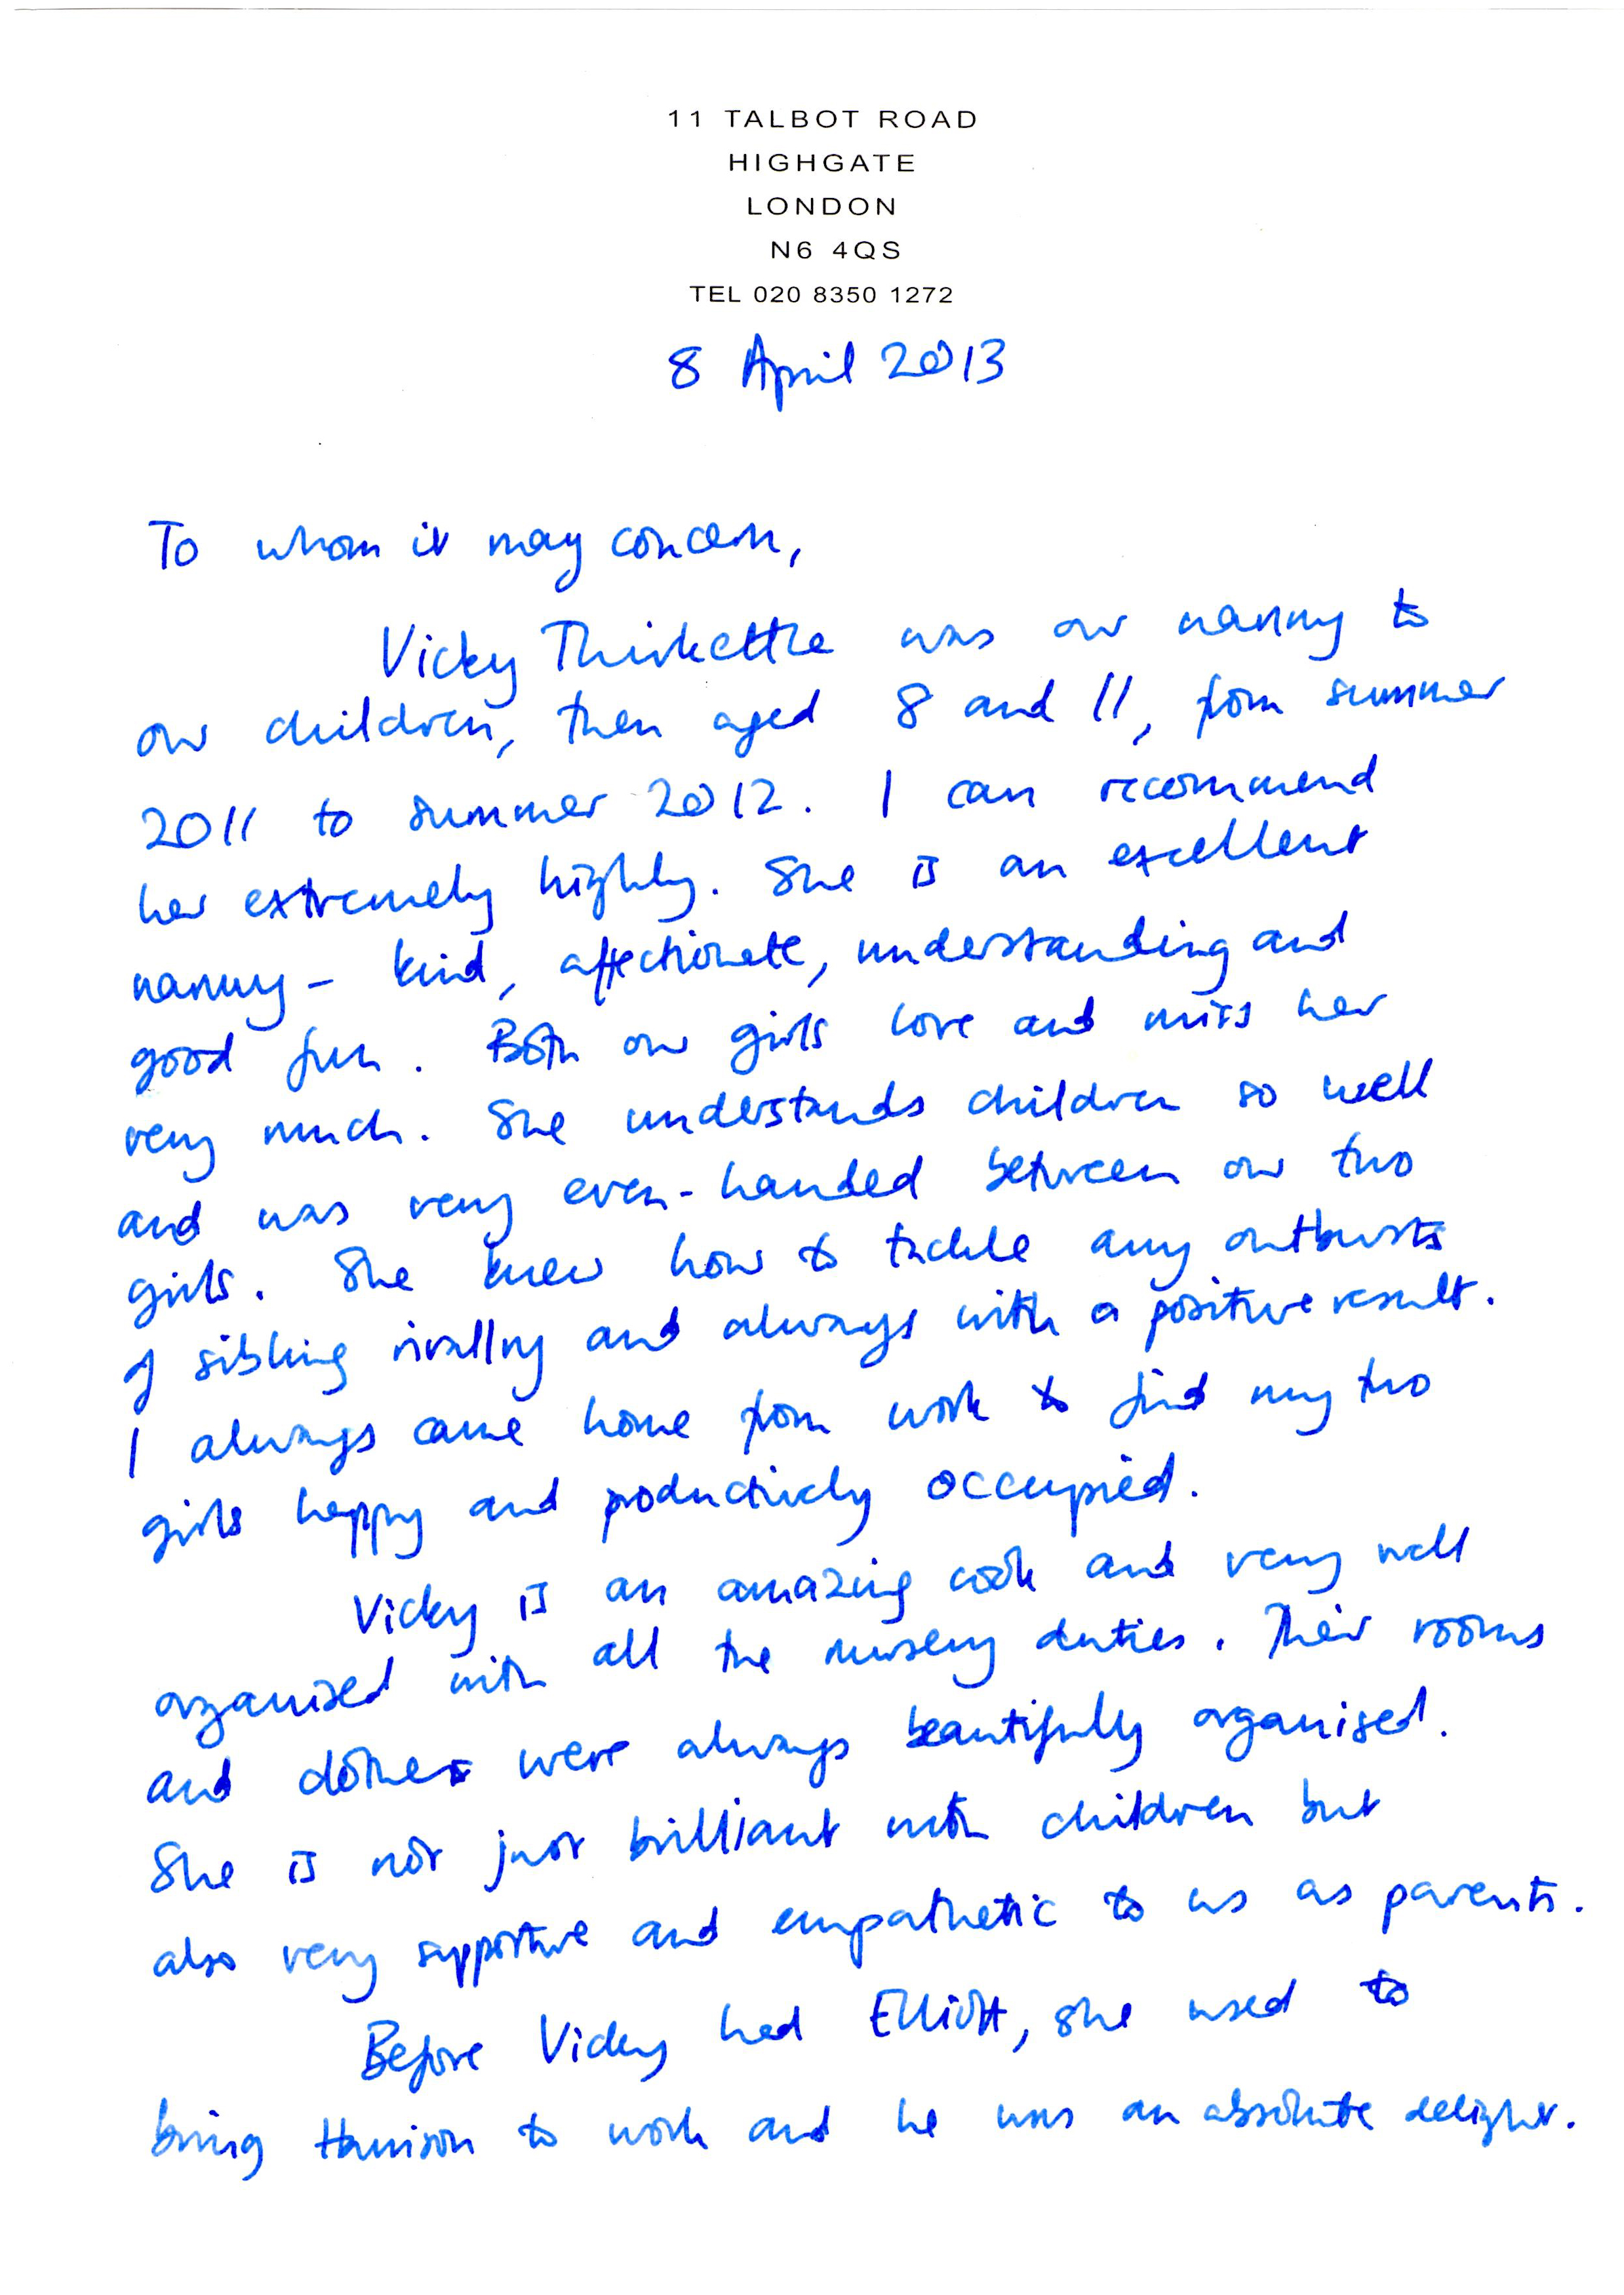 11 TALBOT ROAD
HIGHGATE
LONDON
N6 4QS
TEL 020 8350 1272
8 April 2013
To whom it may concern,
Vicky Thirkettle was our nanny to
our children, then aged 8 and 11, from summer
2011 to summer 2012. I can recommend
her extremely highly. She is an excellent
nanny - kind, affectionate, understanding and
good fun. Both our girls love and miss her
very much. She understands children so well
and was very even-handed between our two
girls. She knew how to tackle any outbursts
of sibling rivallry and always with a positive result.
I always came home from work to find my two
girls happy and productively occupied.
Vicky is an amazing cook and very well
organised with all the nursery duties. Their rooms
and clothes were always beautifully organised.
She is not just brilliant with children but
also very supportive and empathetic to us as parents.
Before Vicky had Elliott, she used to
bring Harrison to work and he was an absolute delight.